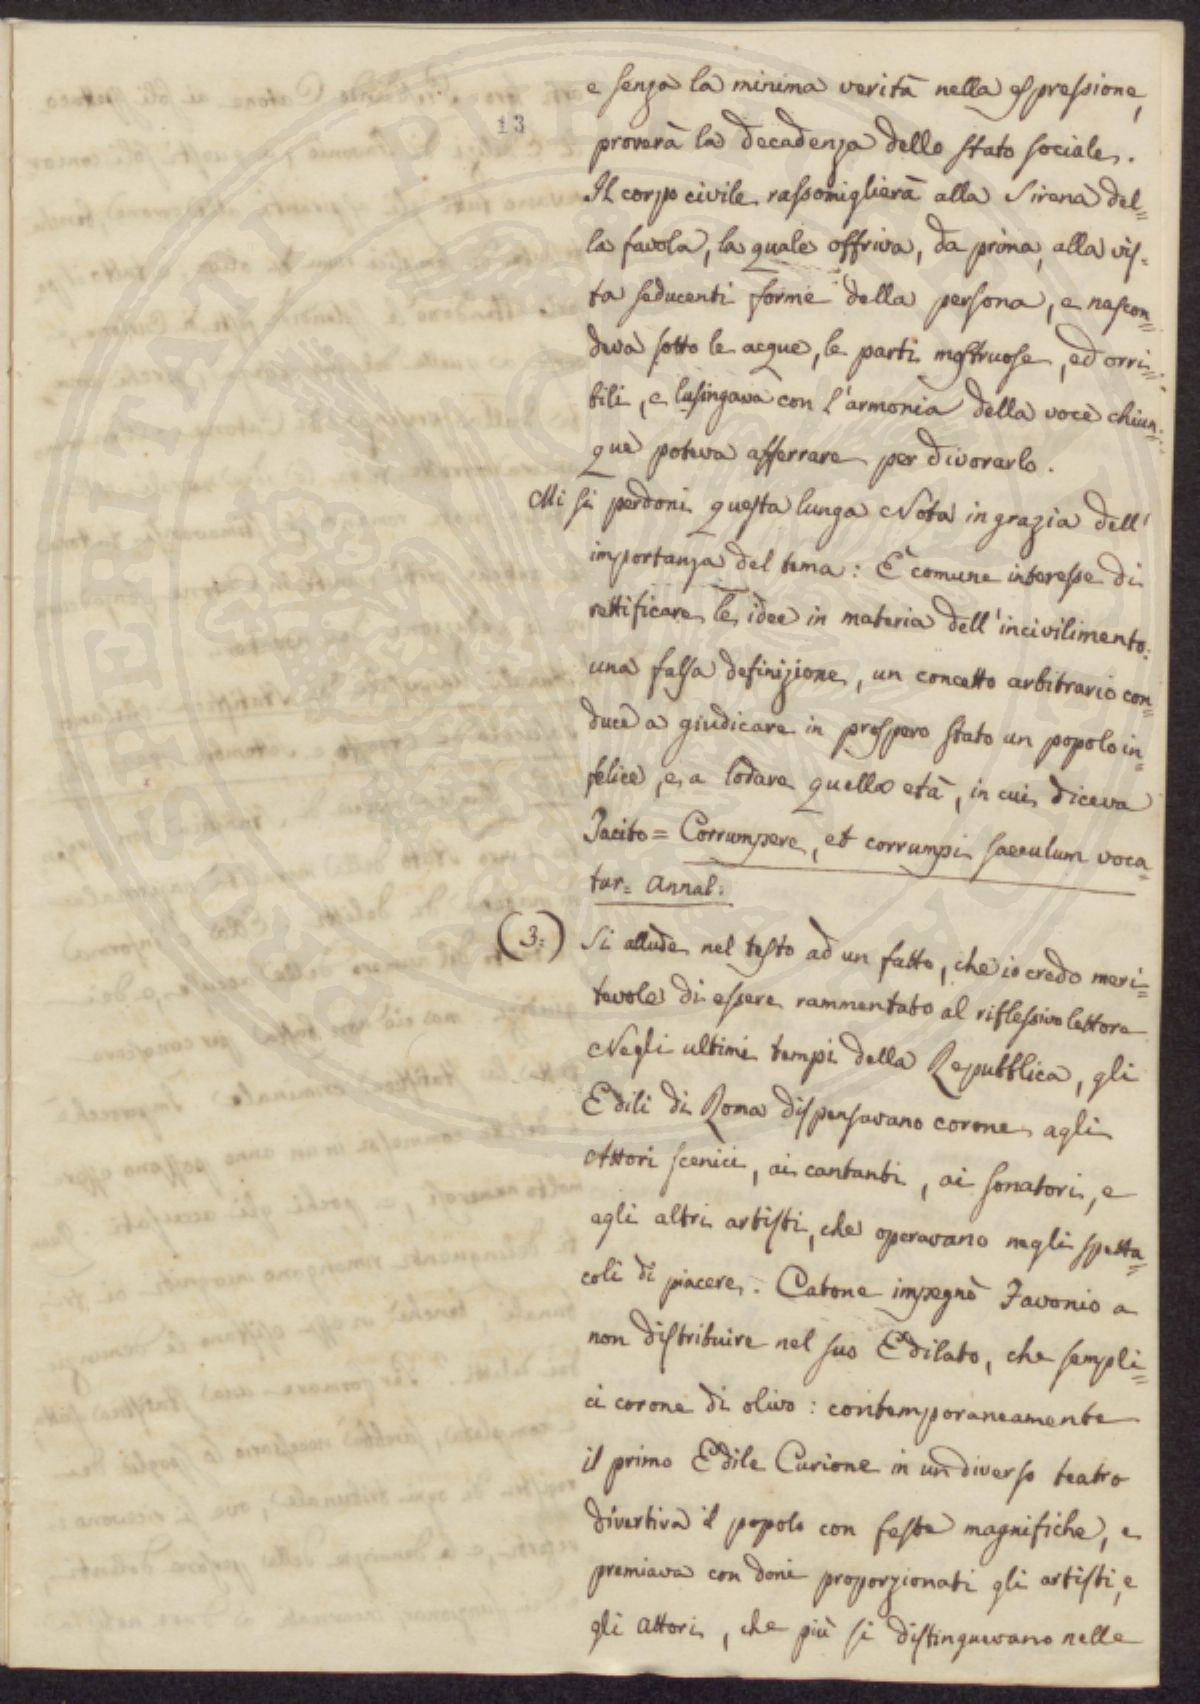 13
e senza la minima verità nella espressione,
proverà la decadenza dello stato sociale.
Il corpo civile rassomiglierà alla Sirena del=
la favola, la quale offriva, da prima, alla vis-
ta seducenti forme della persona, e nascon=
deva sotto le acque, le parti mostruose, ed orri=
bili, e lusingava con l'armonia della voce chiun=
que poteva afferrare per divorarlo.
Mi si perdoni questa lunga Nota in grazia dell'
importanza del tema: È comune interesse di
rettificare le idee in materia dell'incivilimento:
una falsa definizione, un concetto arbitrario con=
duce a giudicare in prospero stato un popolo in=
felice, e a lodare quella età, in cui diceva
Tacito = Corrumpere, et corrumpi saeculum voca=
tur = Annal:
(3:) Si allude nel testo ad un fatto, che io credo meri=
tevole di essere rammentato al riflessivo lettore
Negli ultimi tempi della Repubblica, gli
Edili di Roma dispensavano corone agli
Attori scenici, ai cantanti, ai sonatori, e
agli altri artisti, che operavano negli spetta=
coli di piacere. Catone impegnò Favonio a
non distribuire nel suo Edilato, che sempli=
ci corone di olivo: contemporaneamente
il primo Edile Curione in un diverso teatro
divertiva il popolo con feste magnifiche, e
premiava con doni proporzionati gli artisti, e
gli attori, che più si distinguevano nelle